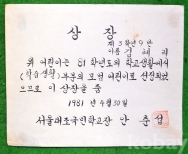 상장
제 3 학년 9 반
이름 김
위 어린이는 81 학년도의 학교생활에서
(학습생활) 부문의 모범 어린이로 선정되었
으므로 이 상장을 줌
1981 년 4 월 30 일
서울대조국민학교장 안춘섭